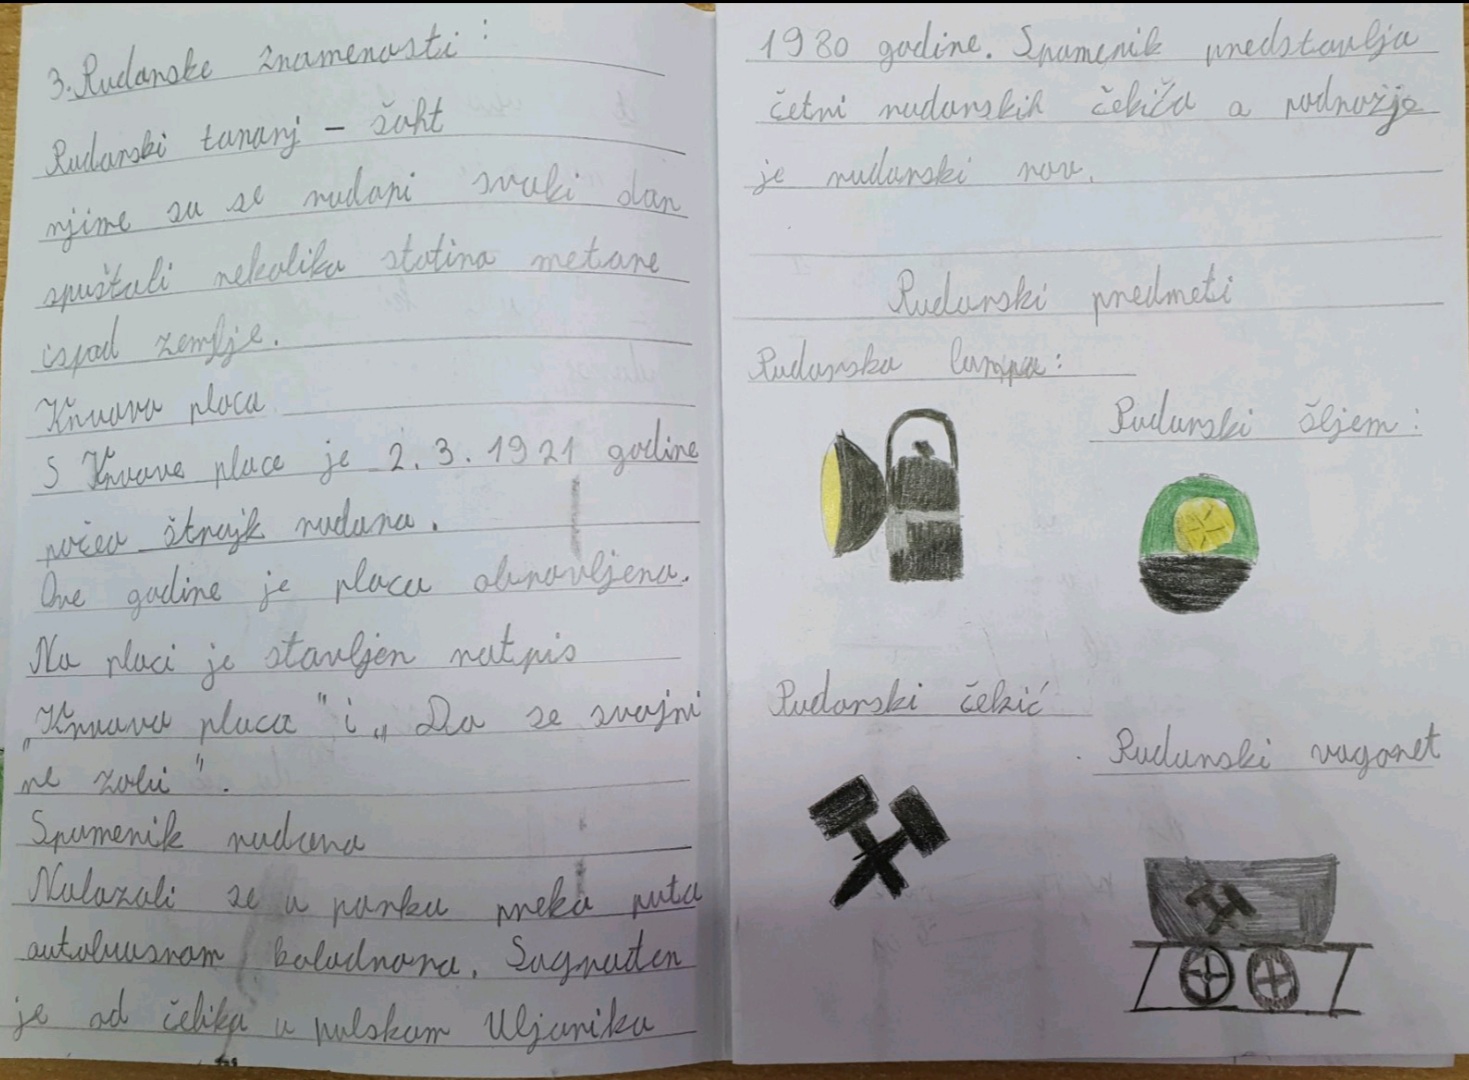 3. Rudarske znamenosti:
Rudarski toranj – šoht
njime su se rudari svaki dan
spuštali nekoliko stotina metare
ispod zemlje.
Krvava placa
S Krvave place je 2.3.1921 godine
počeo štrajk rudara.
Ove godine je placa obnovljena.
Na placi je stavljen natpis
„Krvava placa" i „Da se svojni
ne zabi".
Spomenik rudara
Nalazali se u parku preko puta
autobusnom kolodvora. Sagrađen
je od čelika u pulskom Uljaniku
1980 godine. Spomenik predstavlja
četri rudarskih čekića a podnožje
je rudarski rov.
Rudarski predmeti
Rudarska lampa:
Rudarski šljem:
Rudarski čekić
Rudarski vagonet